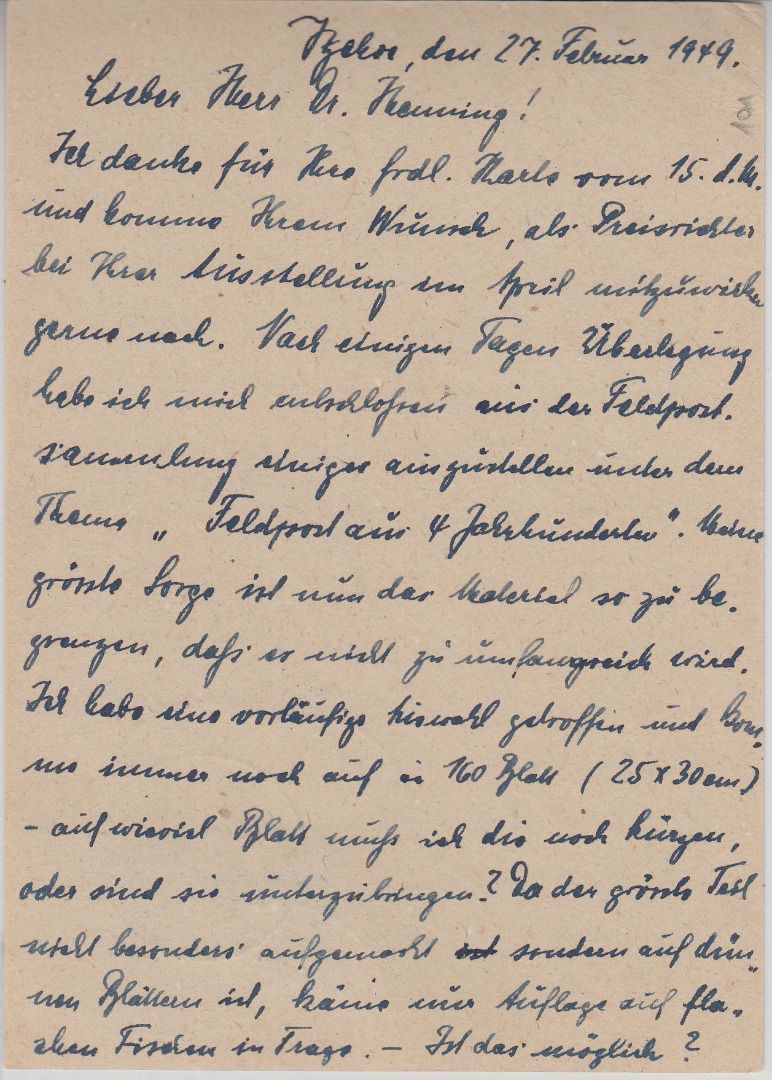 Itzehoe, den 27. Februar 1949.
101
Lieber Herr Dr. Henning!
Ich danke für Ihre frdl. Karte vom 15. d. M.
und komme Ihrem Wunsch, als Preisrichter
bei Ihrer Ausstellung im April mitzuwirken
gerne nach. Nach einigen Tagen Überlegung
habe ich mich entschlossen aus der Feldpost-
sammlung einiges auszustellen unter dem
Thema „Feldpost aus 4 Jahrhunderten". Meine
grösste Sorge ist nun das Material so zu be-
grenzen, daß es nicht zu umfangreich wird.
Ich habe eine vorläufige Auswahl getroffen und kom-
me immer noch auf ca 160 Blatt (25 x 30 cm)
- auf wieviel Blatt muß ich die noch kürzen,
oder sind sie unterzubringen? Da der grösste Teil
nicht besonders aufgemacht ist sondern auf dün-
nen Blättern ist, käme nur Auflage auf fla-
chen Tischen in Frage. - Ist das möglich?